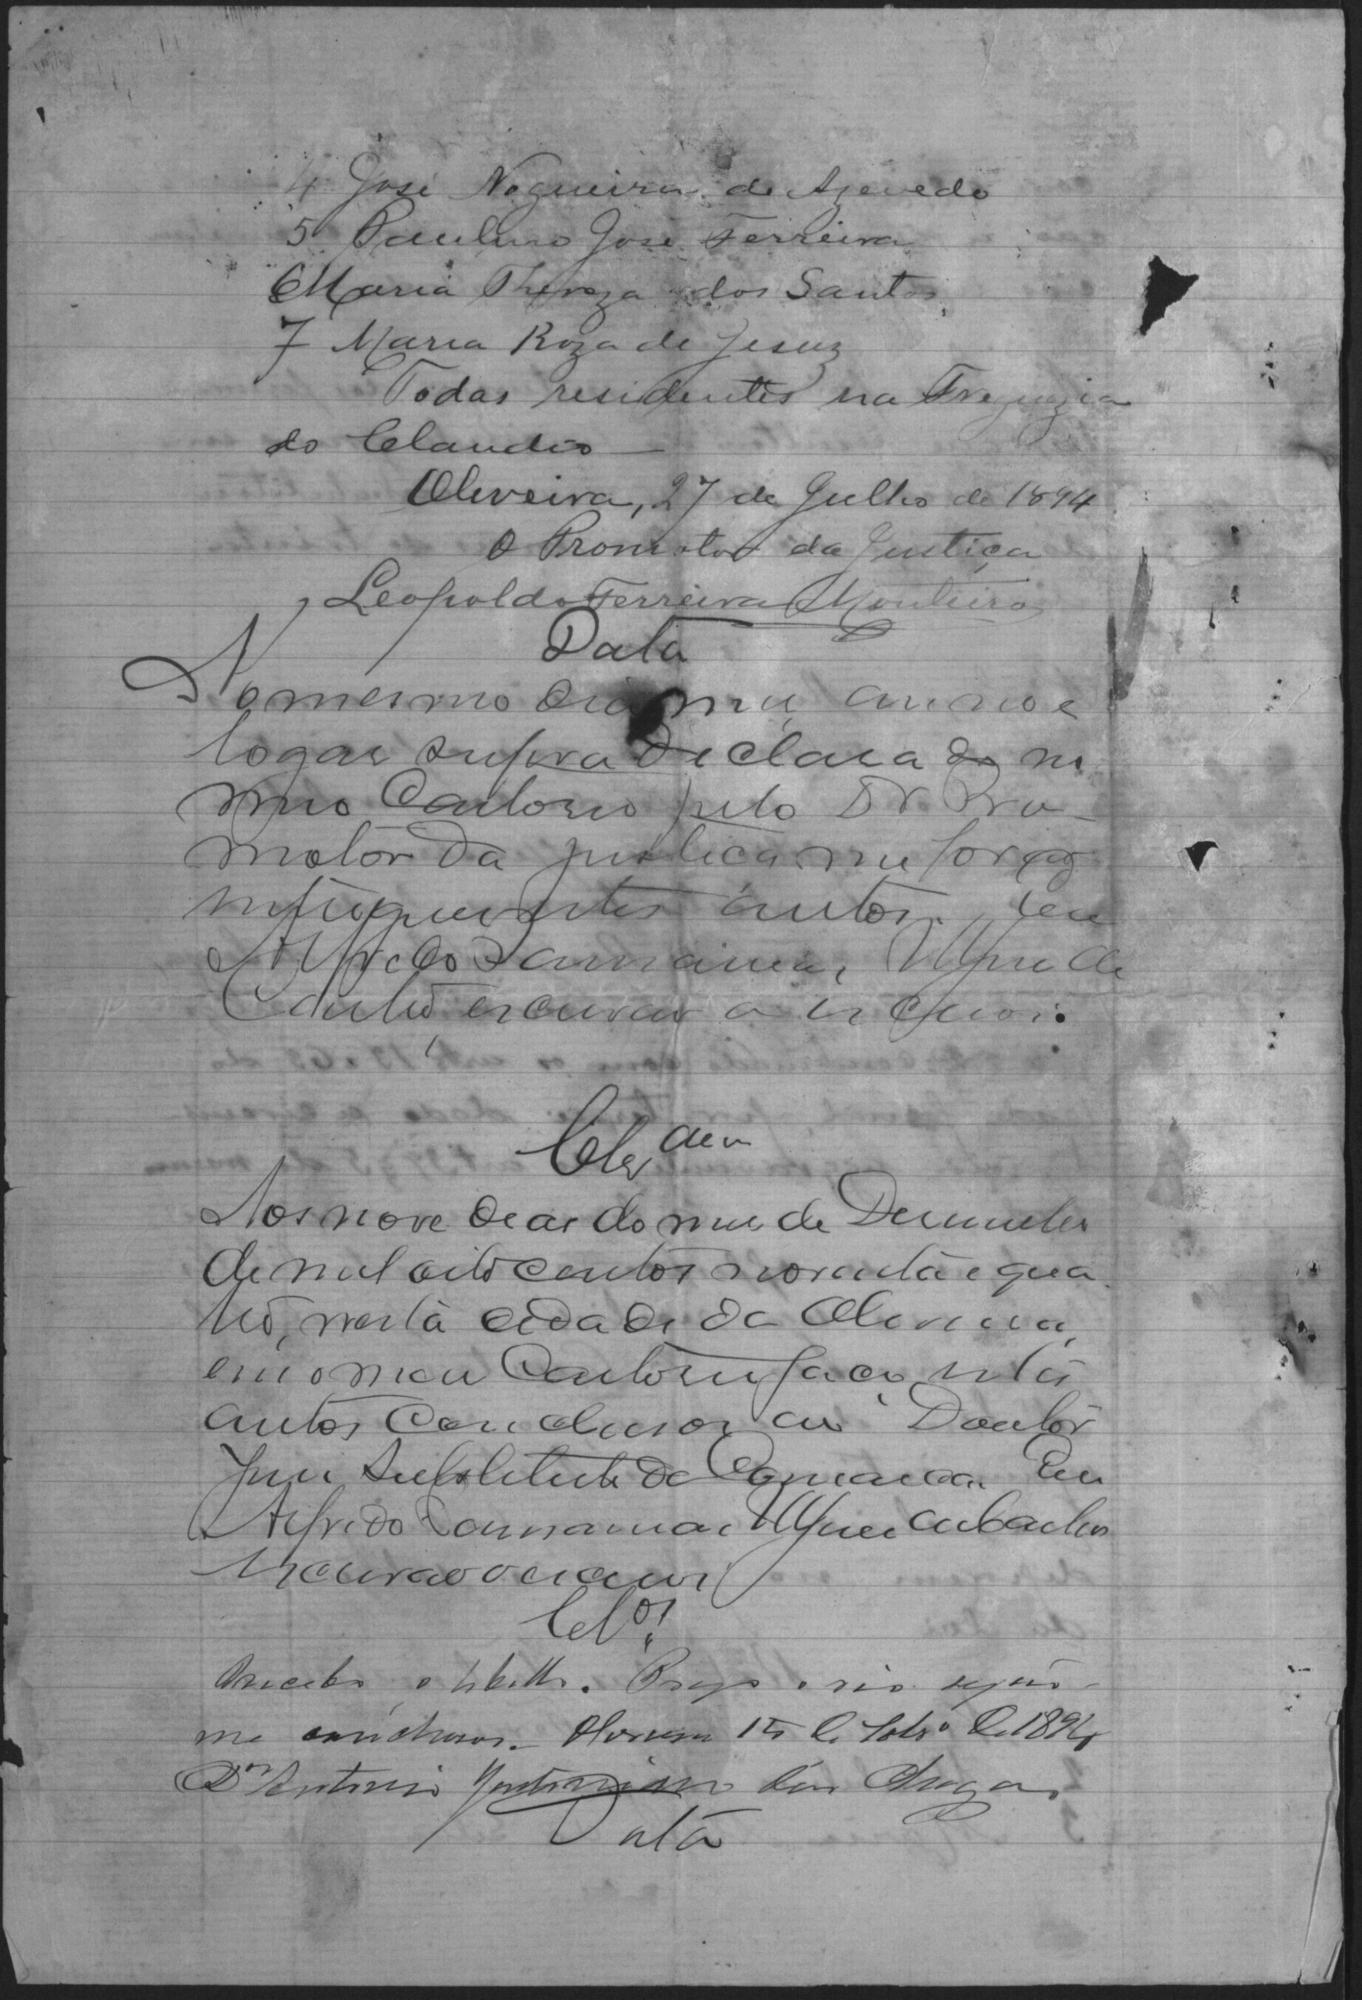 4 José Nogueira de Azevedo
5 Paulino José Ferreira
6 Maria Thereza dos Santos
7 Maria Roza de Jesuz
Todas residentes na Freguezia
do Claudio
Oliveira, 27 de Julho de 1894
O Promotor da Justiça
Leopoldo Ferreira Monteiro
Data
No mesmo dia, mez, anno e
logar supra declarado no
meu Cartorio pelo Dr Pro-
motor da justiça me forão
entregues estes autos. Eu
Alfredo
escrivão o escrevi.
Clsam
Aos nove dias do mez de Dezembro
de mil oito centos noventa e qua
tro, nesta cidade da Oliveira,
em o meu Cartorio faço estes
autos conclusos ao Doutor
Juiz Substituto da Comarca. Eu
Alfredo
escrivão o escrevi
Clos
Recebo o libello. o réo
Oliveira 15 de de 1894
Dr Antonio Justiniano das Chagas
Data